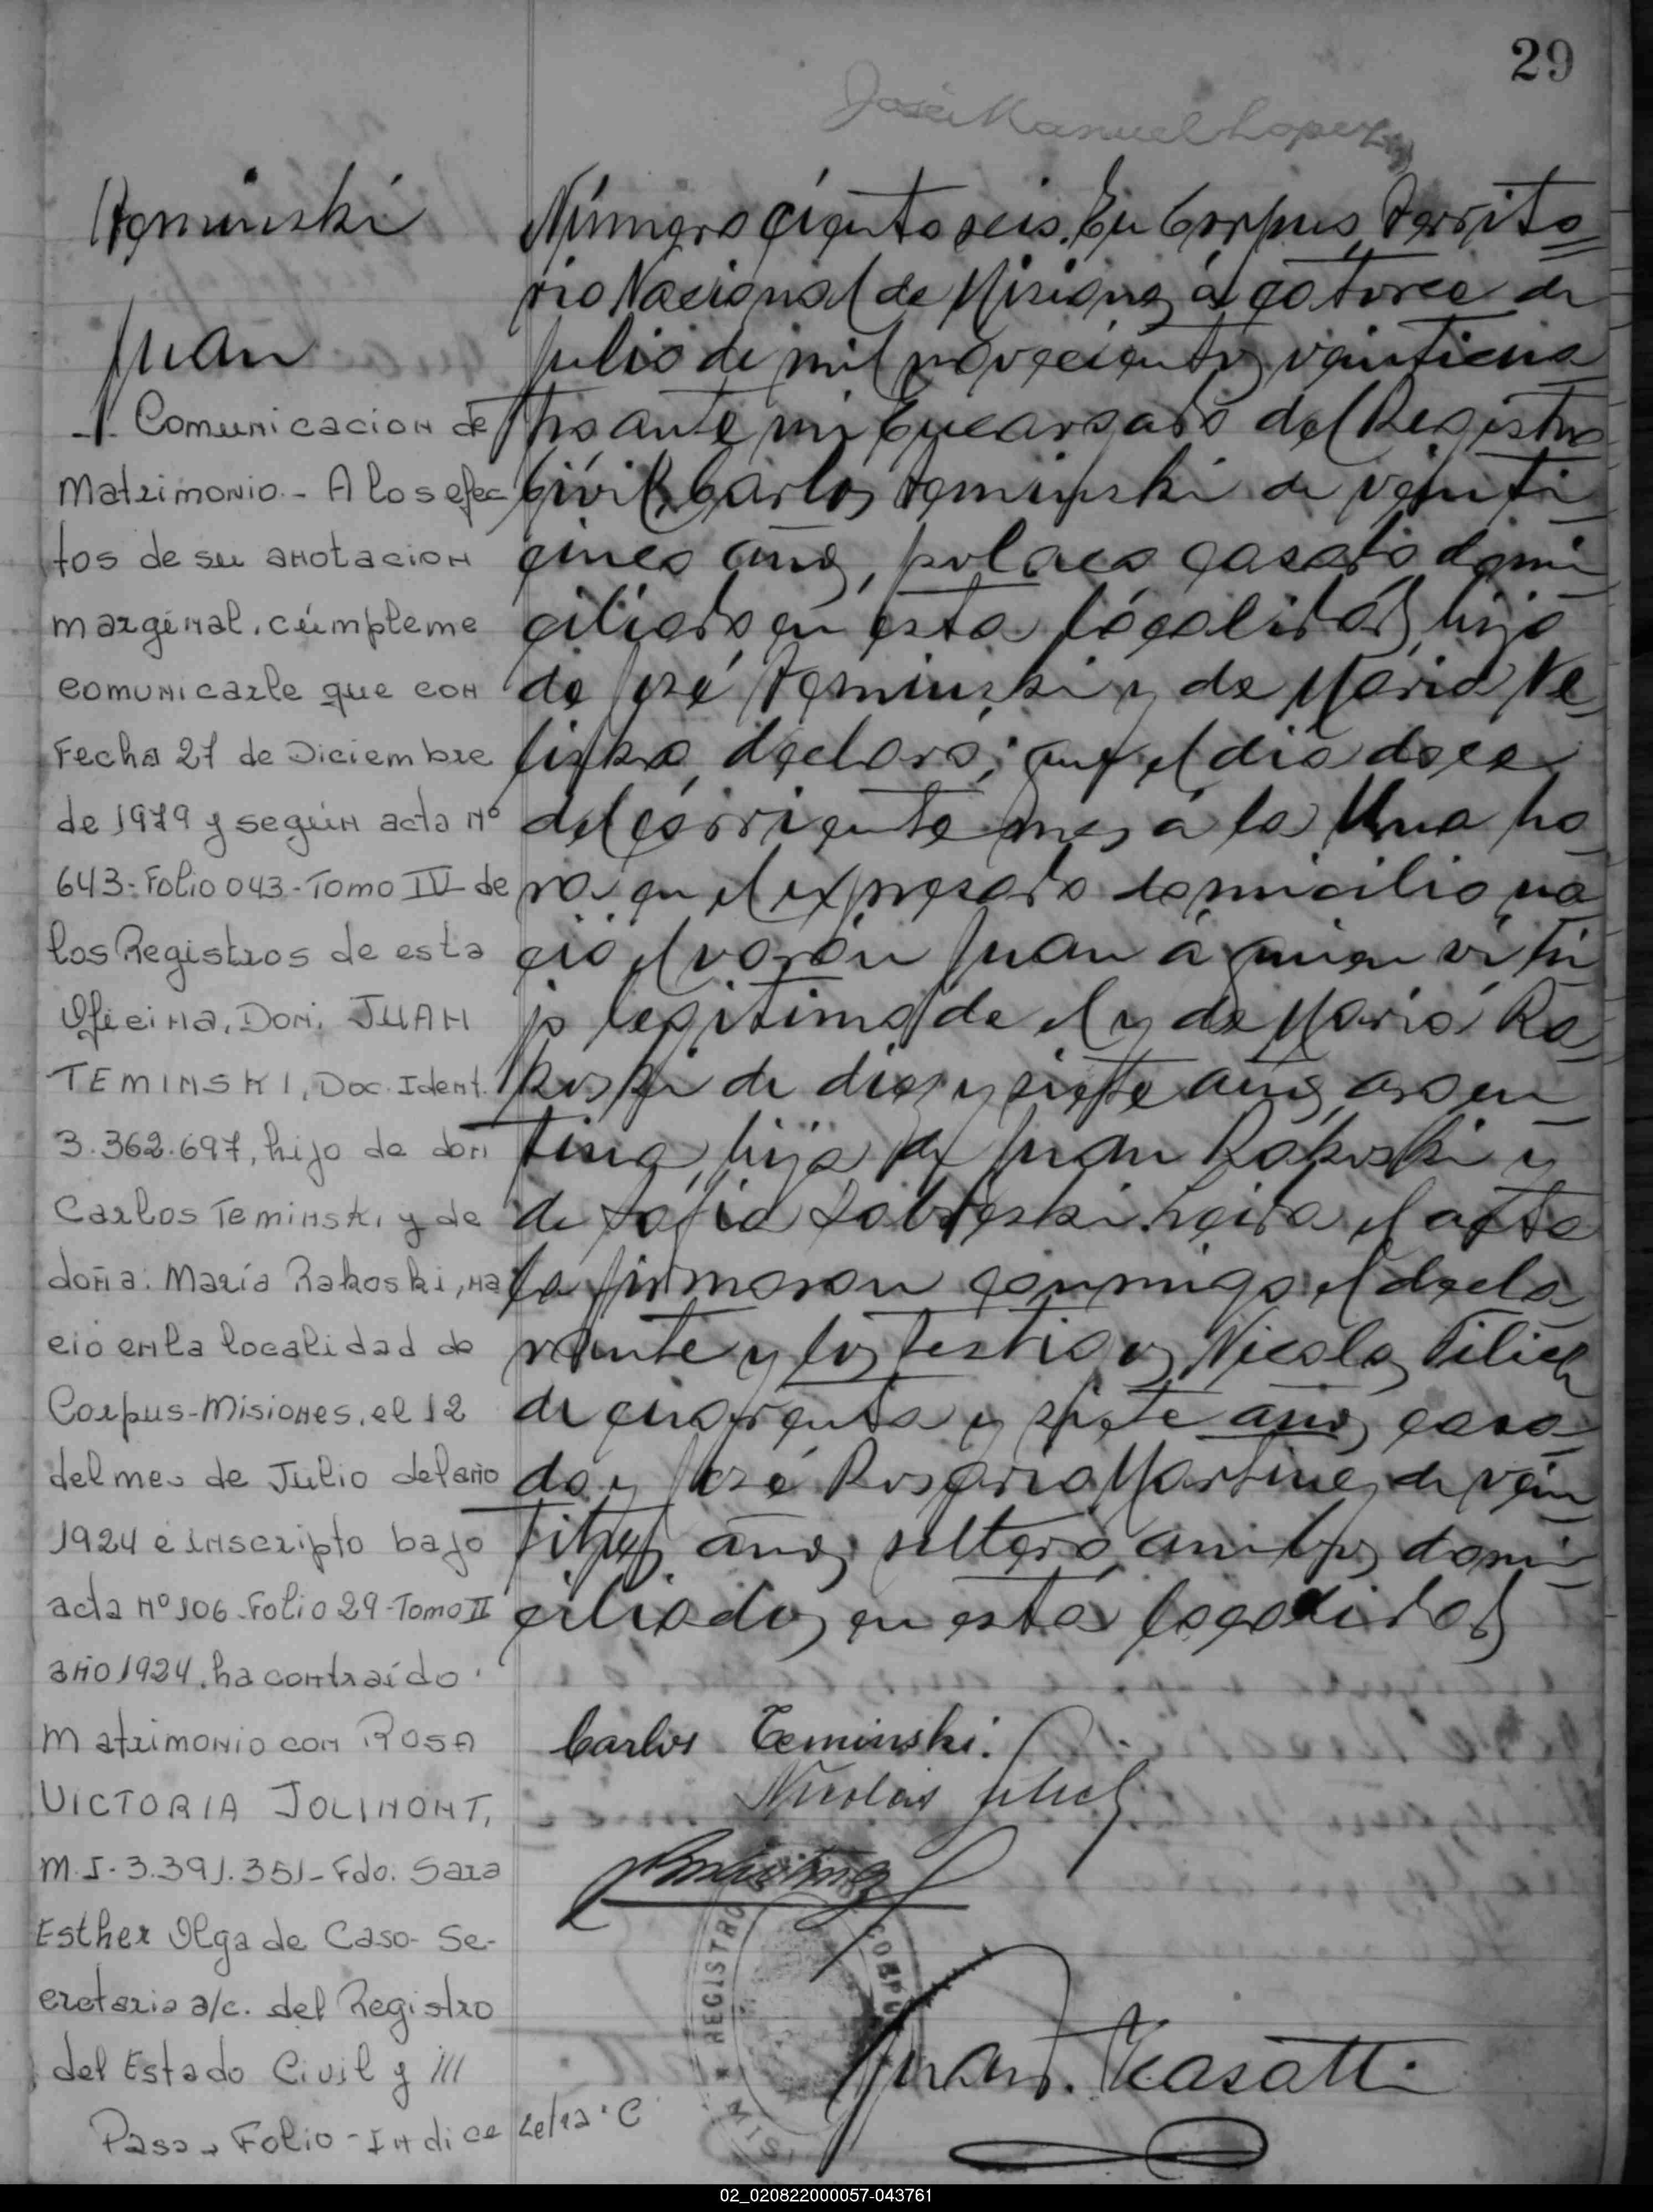 29
José Manuel Lopez
Teminski
Juan
Comunicacion de
Matrimonio.- A los efec
tos de su anotacion
marginal, cúmpleme
comunicarle que con
Fecha 27 de Diciembre
de 1979 y según acta Nº
643- Folio 043- Tomo IV de
los Registros de esta
Oficina, Don, JUAN
TEMINSKI, Doc. Ident.
3.362.697, hijo de don
Carlos Teminski y de
doña: María Rakoski, na
ció en la localidad de
Corpus-Misiones, el 12
del mes de Julio del año
1924 é inscripto bajo
acta Nº 106- Folio 29- Tomo II
año 1924, ha contraído
Matrimonio con ROSA
VICTORIA JOLINONT,
M.I. 3.391.351- Fdo. Sara
Esther Olga de Caso- Se-
cretaria a/c. del Registro
del Estado Civil y ///
Pasa Folio - Indice Letra "C
Número ciento seis. En Corpus, Territo
rio Nacional de Misiones, á catorce de
Julio de mil novecientos veinticua
tro ante mi Encargado del Registro
Civil, Carlos Teminski de veinti
cinco años, polaco casado domi
ciliado en esta localidad, hijo
de José Teminski y de María Ve
liska, declaró; que el dia doce
del corriente mes, á la una ho
ra en el expresado domicilio na
ció el varón Juan á quien vi hi
jo legitimo de el y de María Ra
koski de diez y siete años, argen
tina, hija de Juan Rakoski y
de Sofia Leida el acta
la firmaron conmigo el decla
rante y los testigos Nicolas Filich
de cuarenta y siete años, casa
do y José Rosario Martinez de vein
titres años, soltero, ambos domi
ciliados en esta localidad
Carlos Teminski.
Nicolás Filich
REGISTRO
CORPUS
MISI
Juan Casatti
02_020822000057-043761